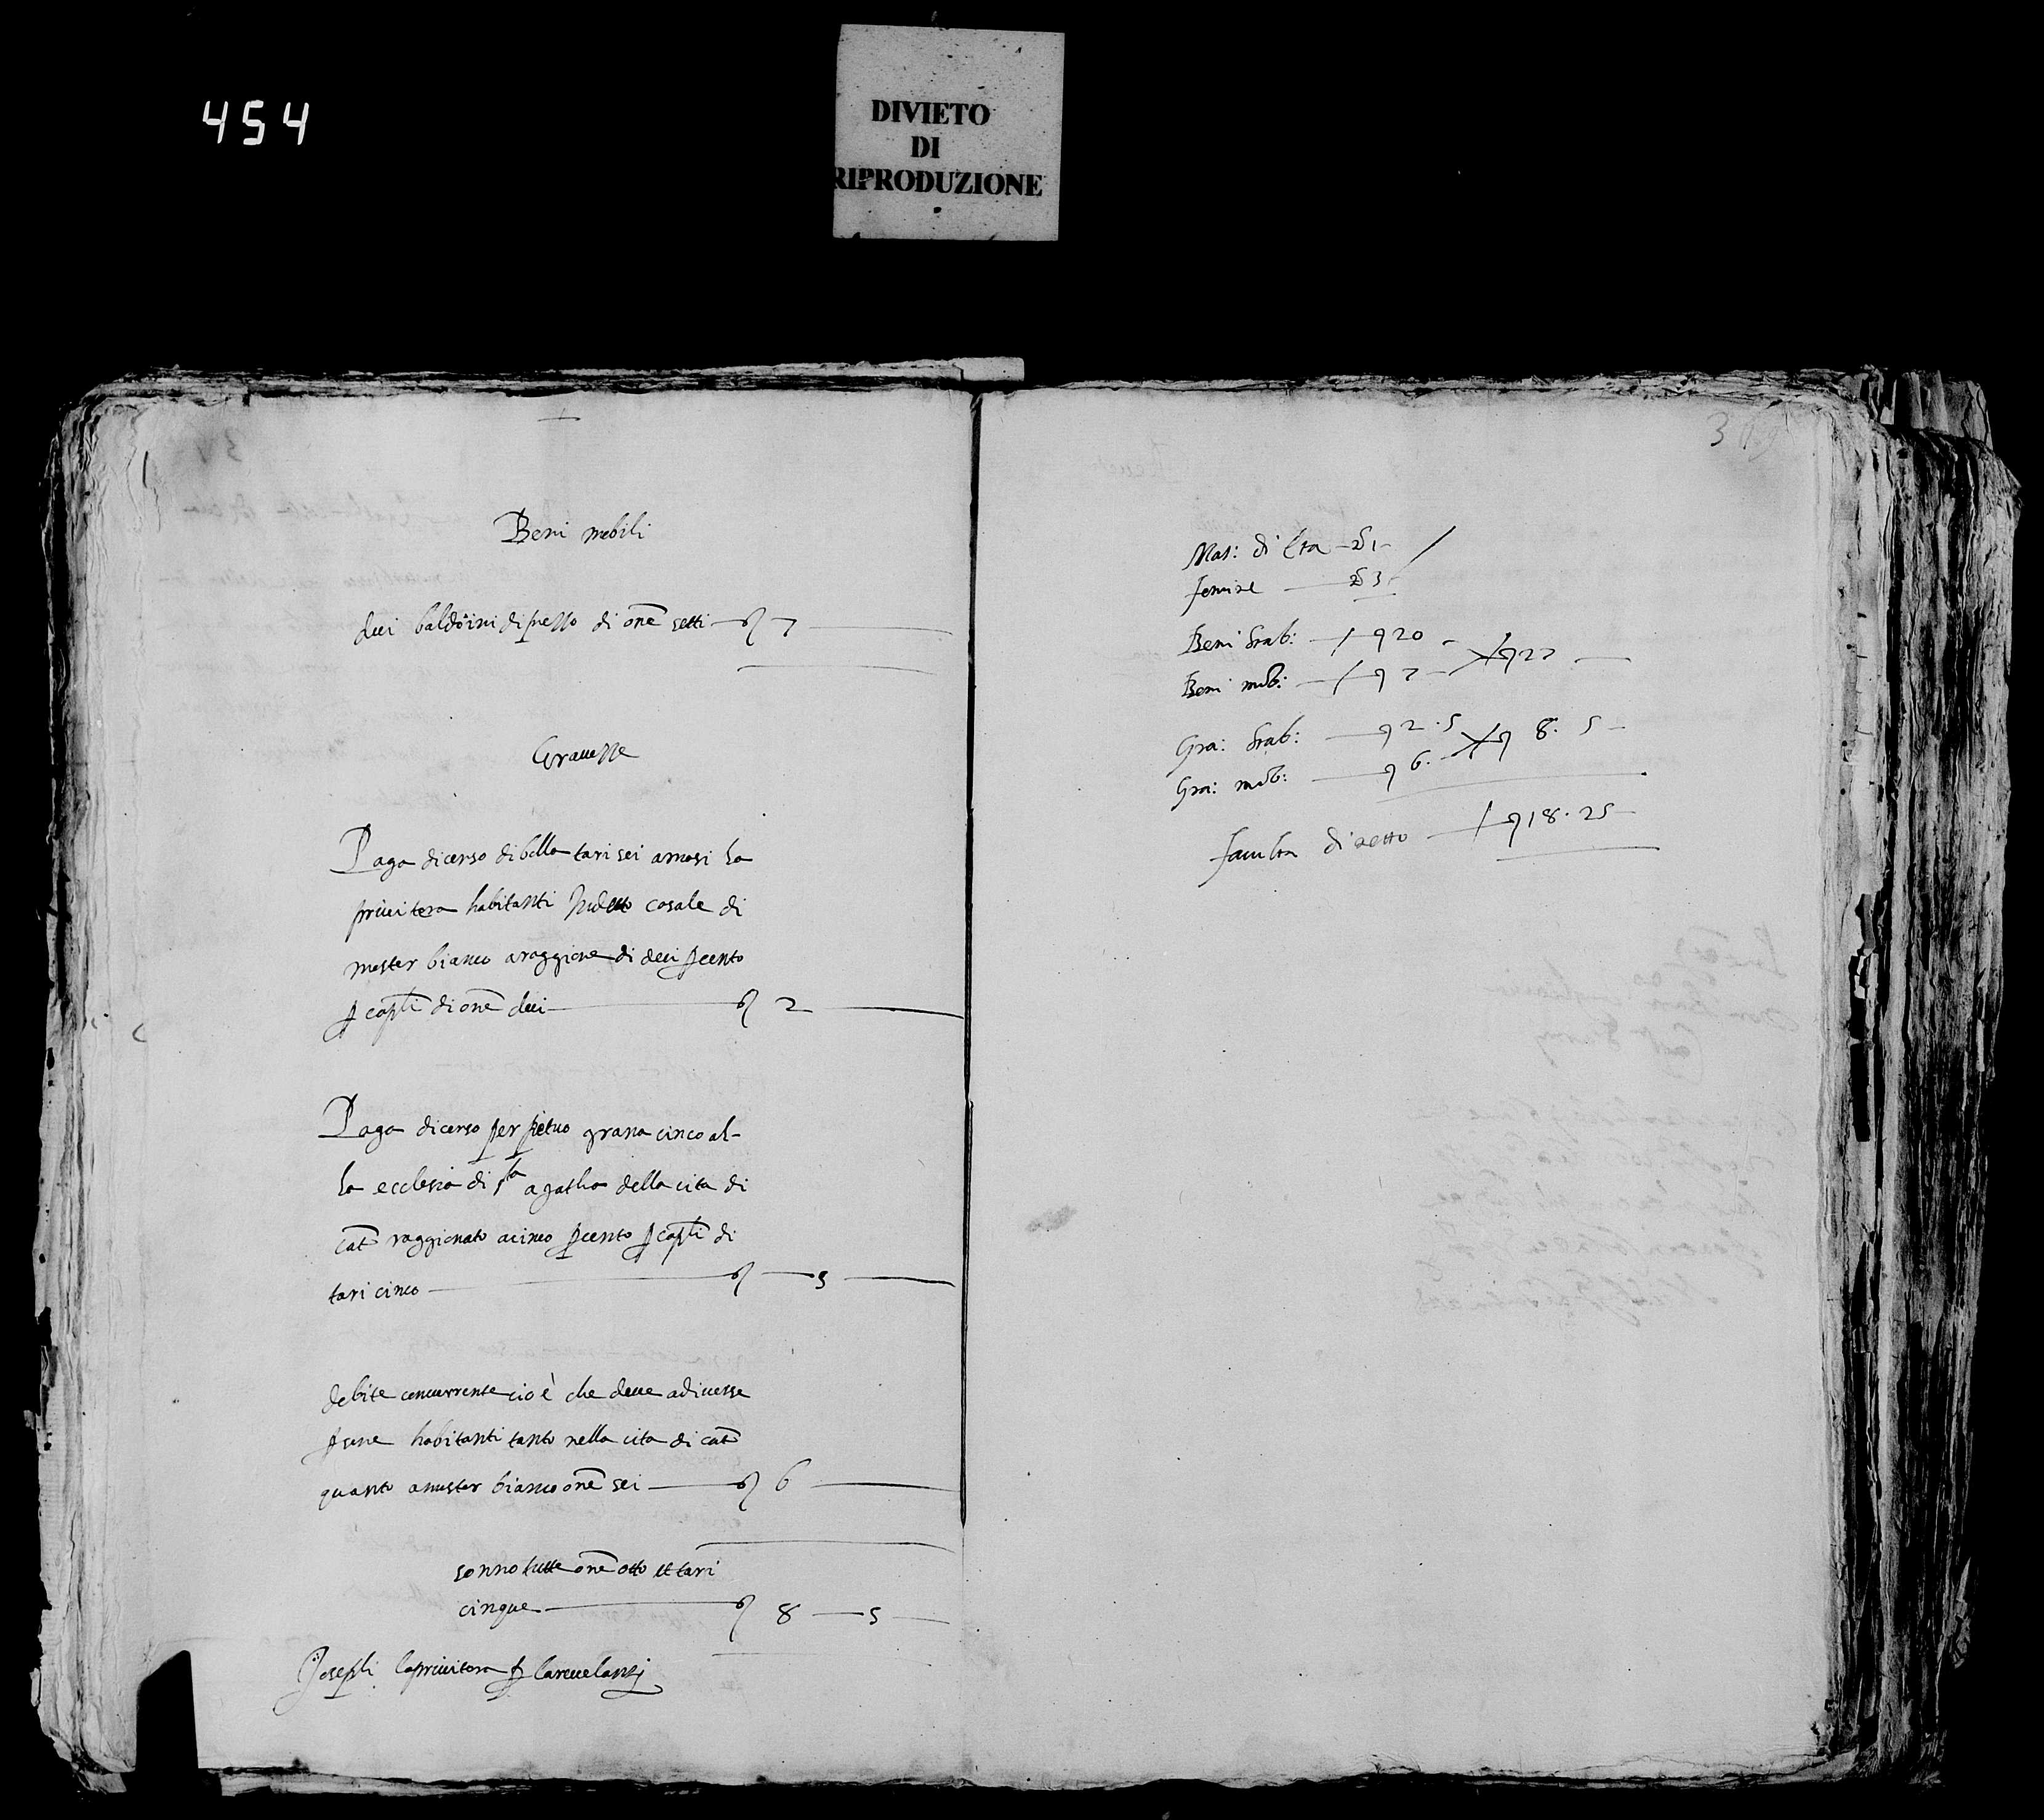 454
DIVIETO
DI
RIPRODUZIONE
Beni mobili
dui baldoini di prezzo di onẽ setti 7
Gravezze
Paga di censo di bolla tari sei a masi la
privitera habitanti casale di
mester bianco a raggione di deci p cento
p capli di onẽ dui 2
Paga di censo perpetuo grana cinco al-
la ecclesia di sta agatha della cita di
cat raggionato a cinco p cento p capli di
tari cinco 5
debite concurrente cio è che deve a diverse
psone habitanti tanto nella cita di cat
quanto a mester bianco onẽ sei 6
sonno tutte onẽ otto et tari
cinque 8 5
Joseph la privitera p
3
Mas: di eta 1
femine 3
Beni stab: 20
27
Beni mob: 7
Gra: stab: 2. 5
8. 5
Gra: mob: 6.
faculta di netto 18. 25